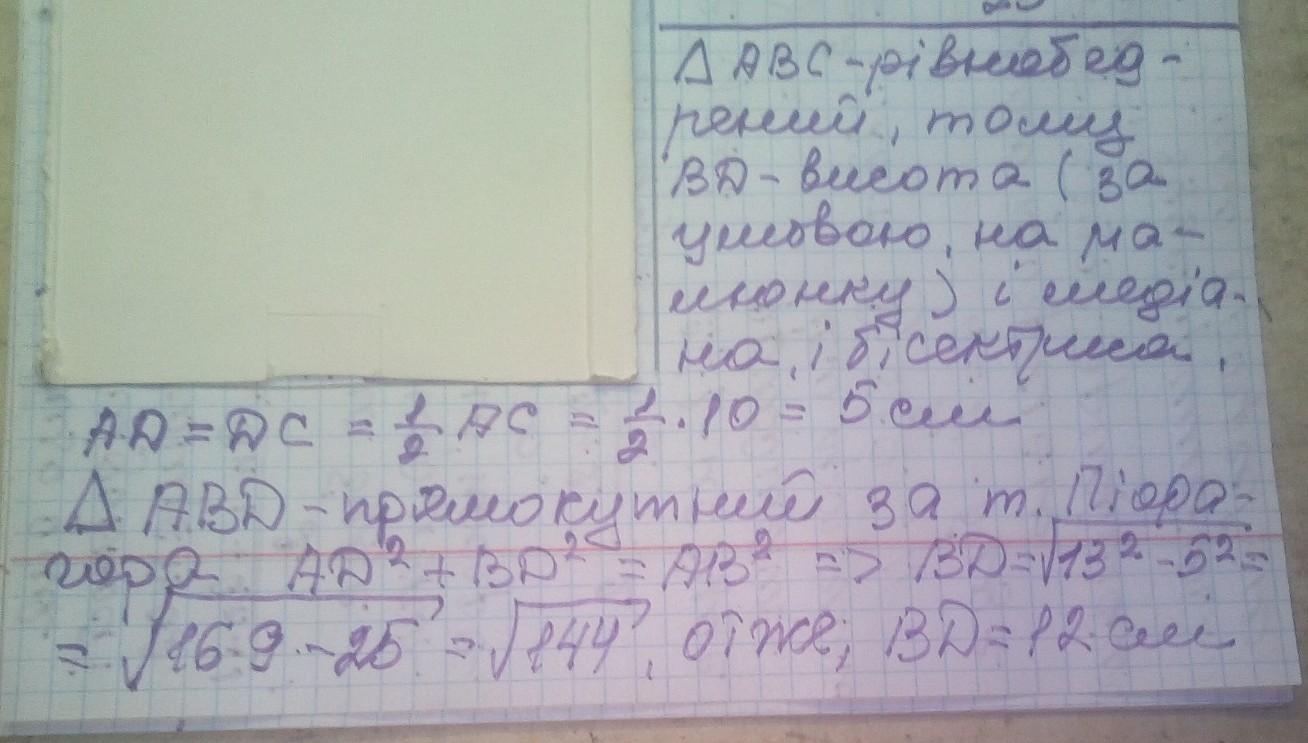 Δ ABC - рівнобед-
рений, тому
BD - висота (за
умовою, на ма-
люнку) і медіа-
на, і бісектриса.
AD = DC = 1/2 AC = 1/2 · 10 = 5 см
Δ ABD - прямокутний за т. Піфа-
гора AD² + BD² = AB² => BD = √13² - 5² =
= √169 - 25 = √144, отже, BD = 12 см